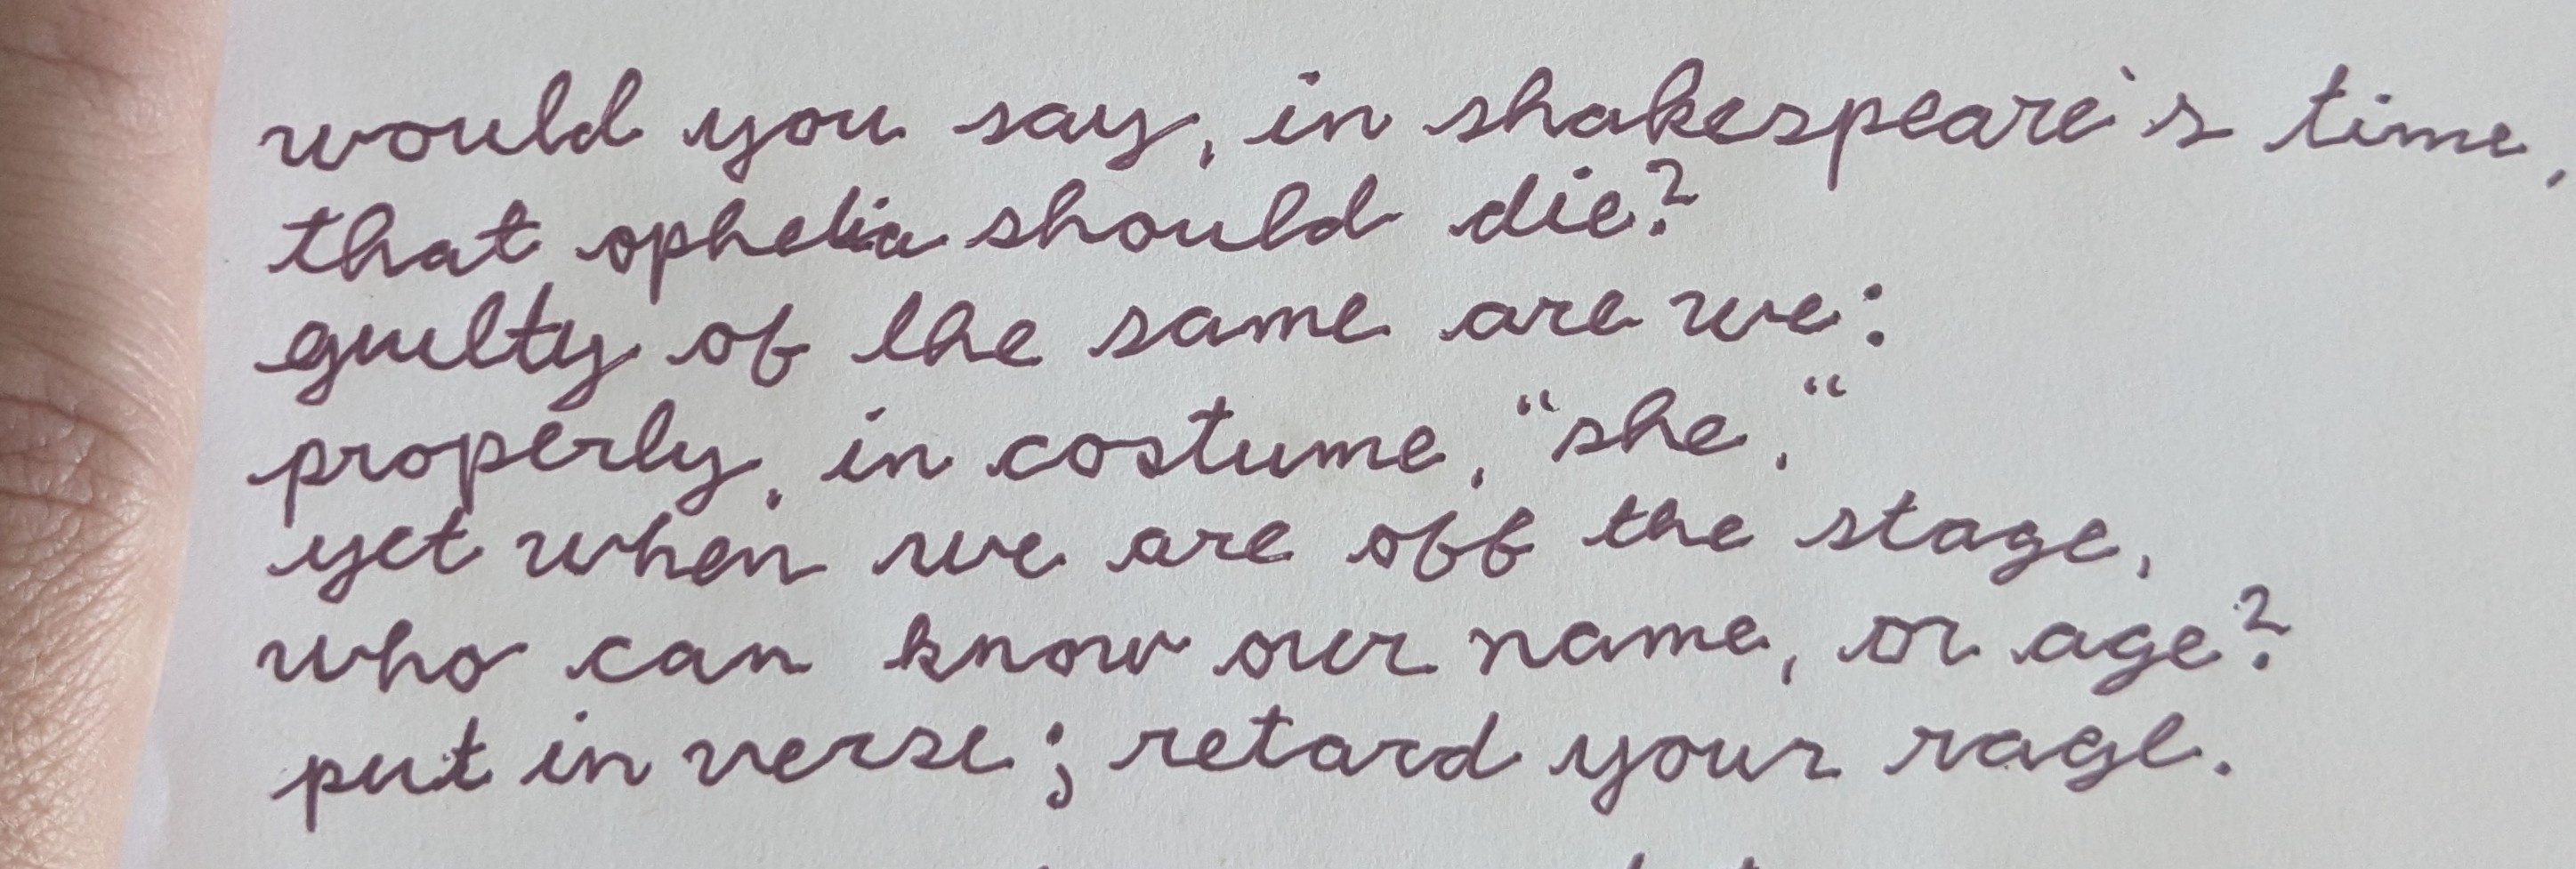 would you say, in shakespeare's time,
that ophelia should die?
guilty of the same are we:
properly, in costume, "she,"
yet when we are off the stage,
who can know our name, or age?
put in verse; retard your rage.